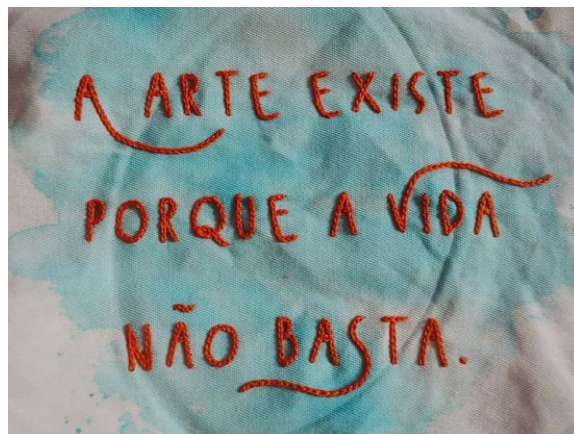 A ARTE EXISTE
PORQUE A VIDA
NÃO BASTA.